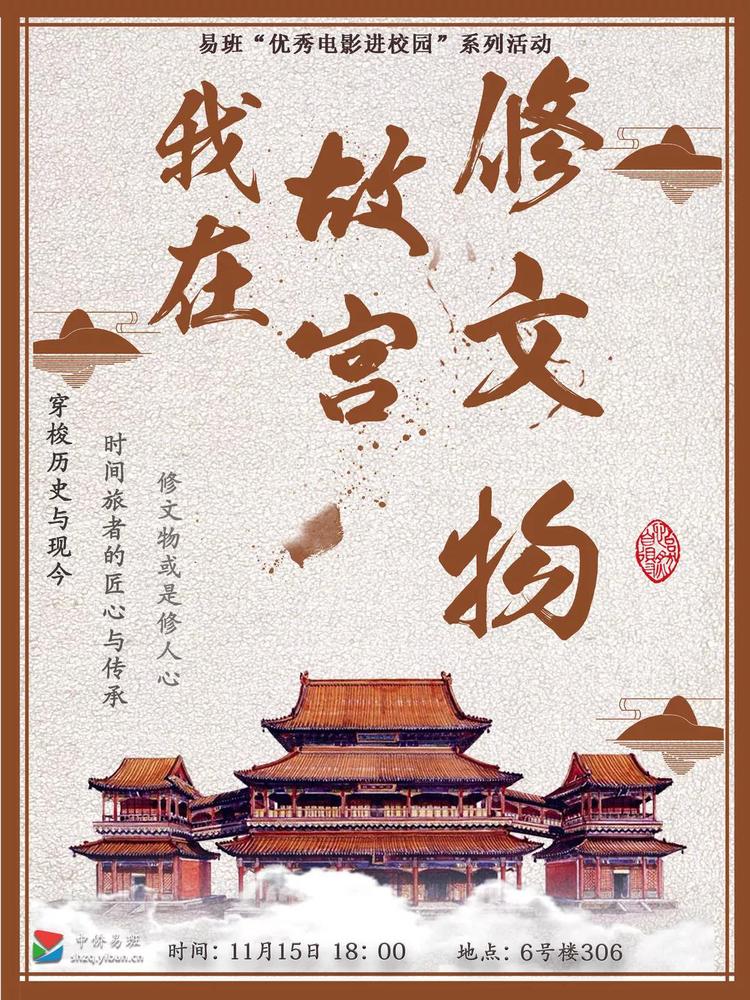 易班“优秀电影进校园”系列活动
我在
故宫
修文物
穿梭历史与现今
时间旅者的匠心与传承
修文物或是修人心
中侨易班
shzq.yiban.cn
时间：11月15日 18：00
地点：6号楼306